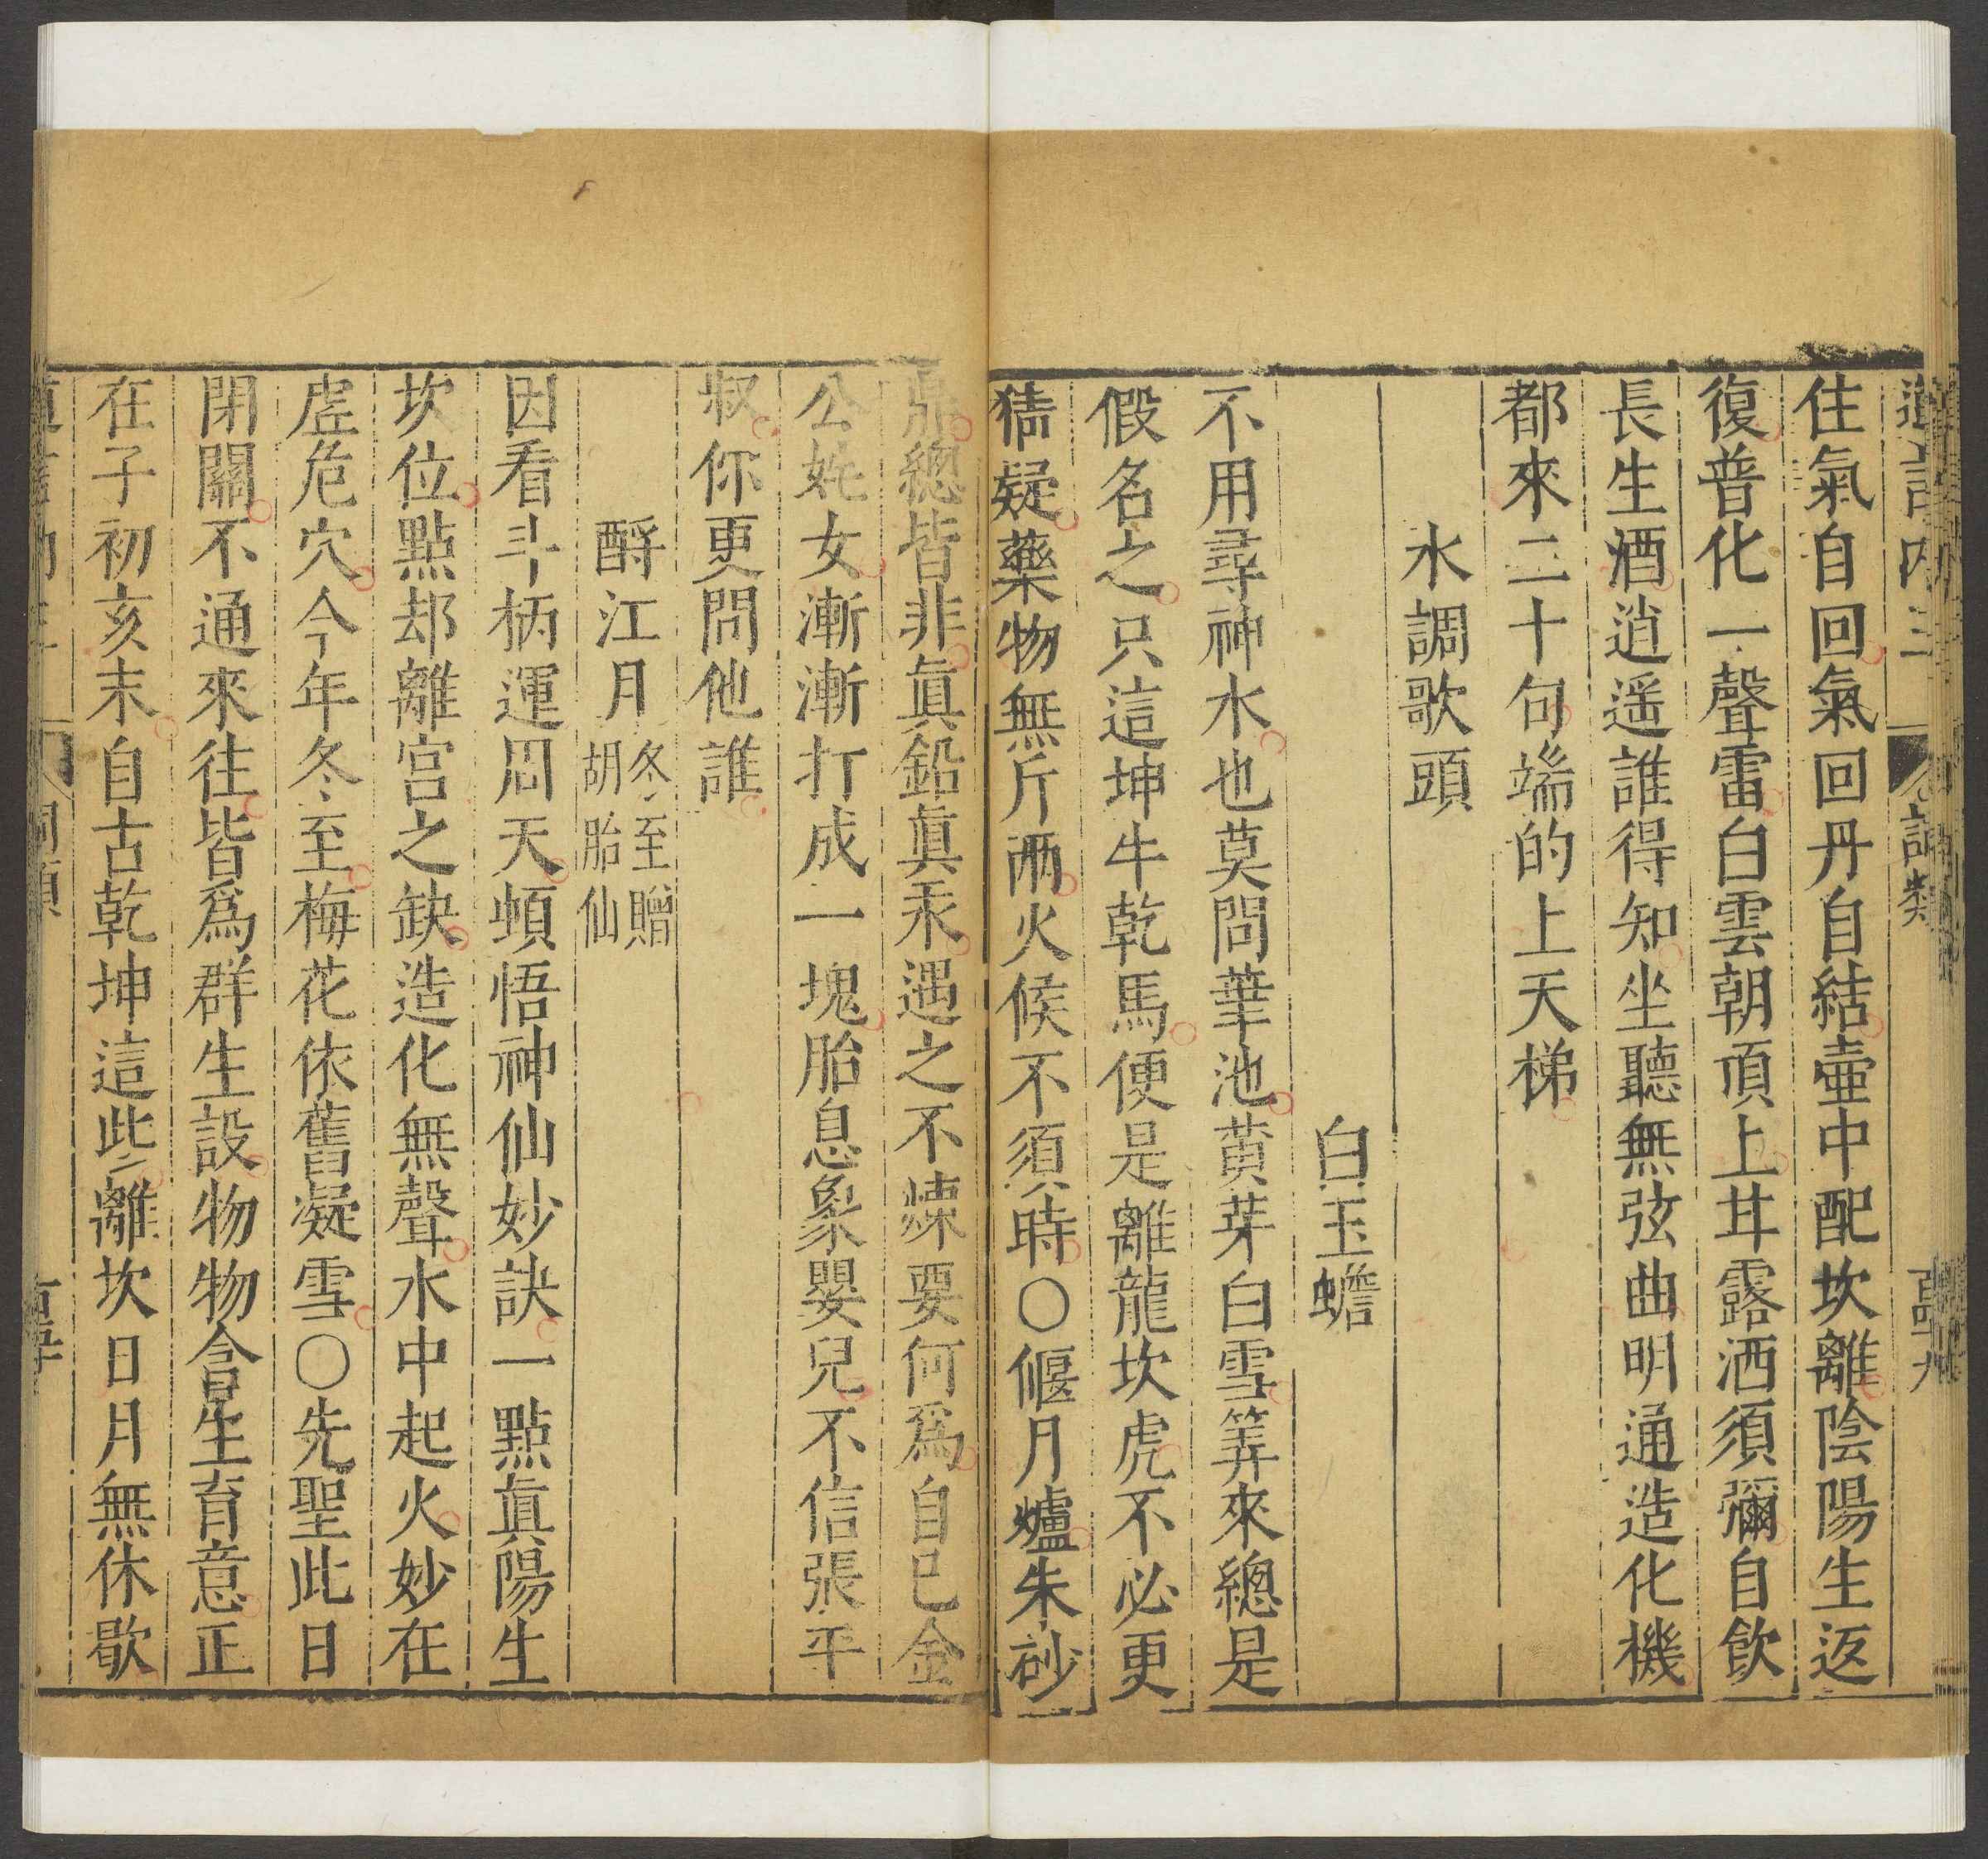 住氣自回氣回丹自結壷中配坎離陰陽生返
復普化一聲雷白雲朝頂上甘露洒須彌自飲
長生酒逍遥誰得知坐聽無弦曲明通造化機
都來二十句端的上天梯
水調歌頭
白玉蟾
不用尋神水也莫問華池黄芽白雪筭來總是
假名之只這坤牛乾馬便是離龍坎虎不必更
猜疑藥物無斤兩火候不須時○偃月爐朱砂
鼎總皆非眞鉛眞汞遇之不煉要何爲自巳金
公姹女漸漸打成一塊胎息象嬰兒不信張平
叔你更問他誰
酹江月 冬至贈胡胎仙
因看斗柄運周天頓悟神仙妙訣一點眞陽生
坎位點却離宫之缺造化無聲水中起火妙在
虚危穴今年冬至梅花依舊凝雪○先聖此日
閉關不通來往皆爲群生設物物含生育意正
在子初亥末自古乾坤這些離坎日月無休歇